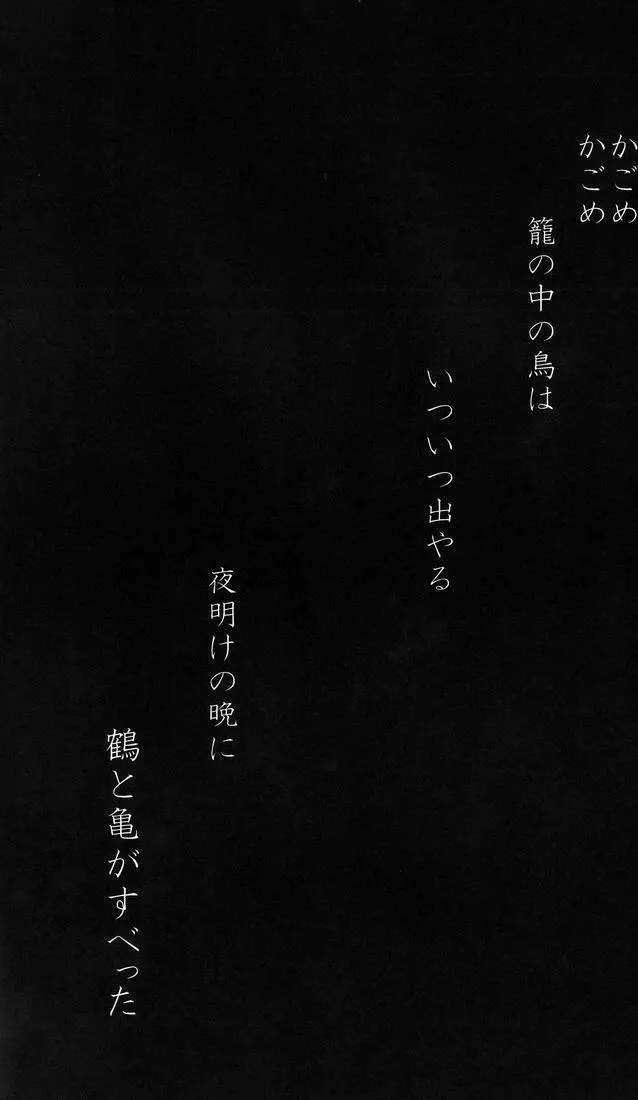 かごめ
かごめ
籠の中の鳥は
いついつ出やる
夜明けの晩に
鶴と亀がすべった